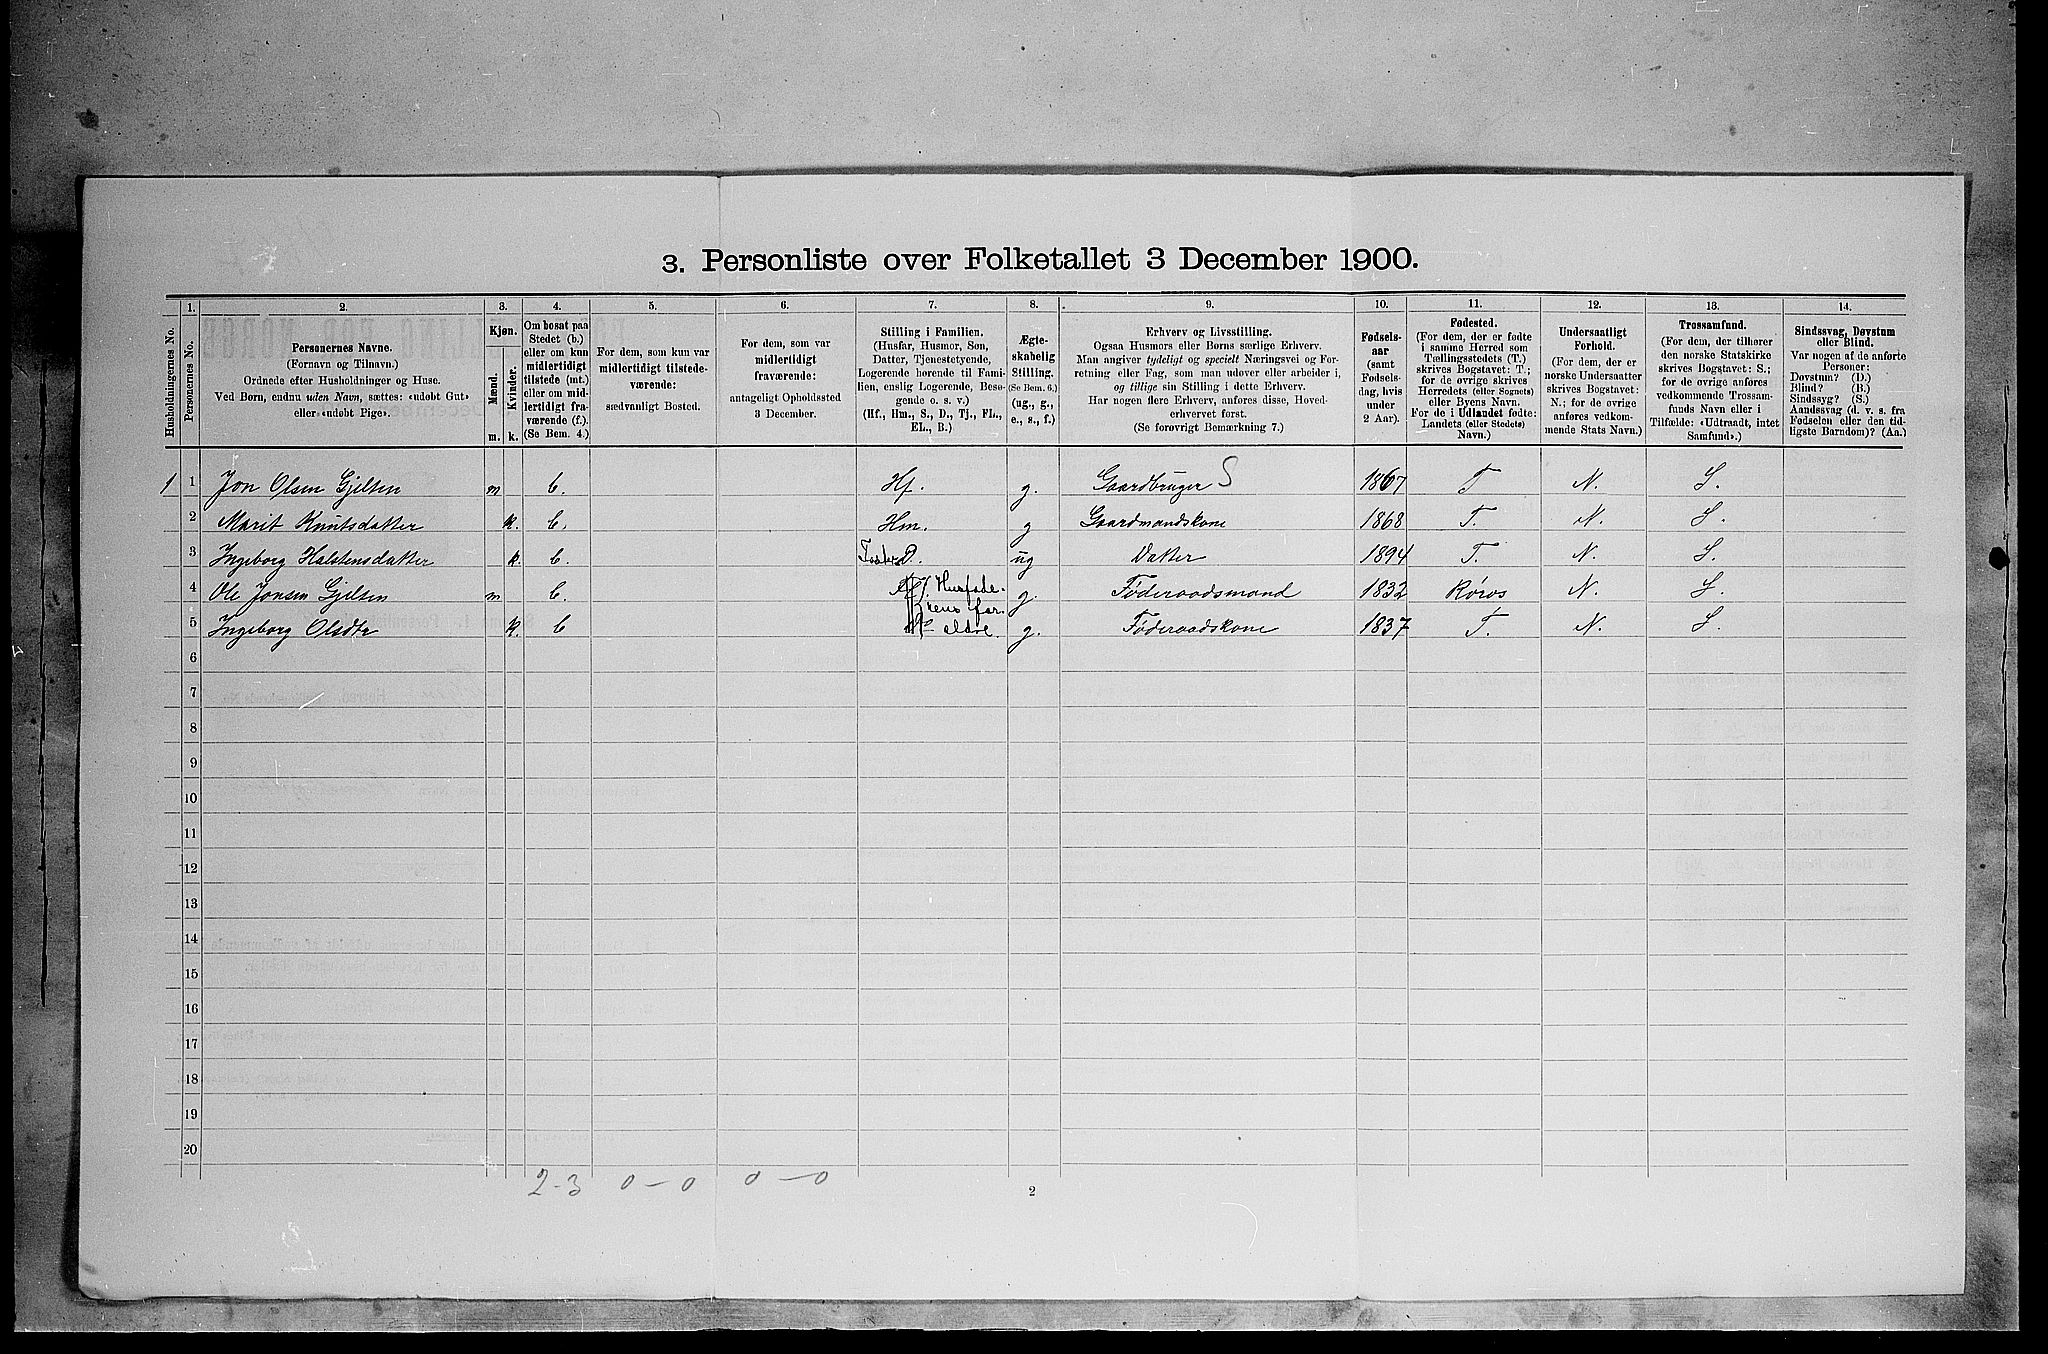 3. Personliste over Folketallet 3 December 1900.
Husholdningernes No.
1.
Personernes No.
2.
Personernes Navne.
(Fornavn og Tilnavn.)
Ordnede efter Husholdninger og Huse.
Ved Børn, endnu uden Navn, sættes: «udøbt Gut»
eller «udøbt Pige».
3.
Kjøn.
Mænd.
Kvinder.
m. k.
4.
Om bosat paa
Stedet (b.)
eller om kun
midlertidigt
tilstede (mt.)
eller om mid-
lertidigt fra-
værende (f.).
(Se Bem. 4.)
5.
For dem, som kun var
midlertidigt tilstede-
værende:
sædvanligt Bosted.
6.
For dem, som var
midlertidigt
fraværende:
antageligt Opholdssted
3 December.
7.
Stilling i Familien.
(Husfar, Husmor, Søn,
Datter, Tjenestetyende,
Logerende hørende til Fami-
lien, enslig Logerende, Besø-
gende o. s. v.)
(Hf., Hm., S., D., Tj., FL.,
EL., B.)
8.
Ægte-
skabelig
Stilling.
(Se Bem. 6.)
(ug., g.,
e., s., f.)
9.
Erhverv og Livsstilling.
Ogsaa Husmors eller Børns særlige Erhverv.
Man angiver tydeligt og specielt Næringsvei og For-
retning eller Fag, som man udøver eller arbeider i,
og tillige sin Stilling i dette Erhverv.
Har nogen flere Erhverv, anføres disse, Hoved-
erhvervet først.
(Se forøvrigt Bemærkning 7.)
10.
Fødsels-
aar
(samt
Fødsels-
dag, hvis
under
2 Aar).
11.
Fødested.
(For dem, der er fødte
i samme Herred som
Tællingsstedets (T.)
skrives Bogstavet: T.;
for de øvrige skrives
Herredets (eller Sognets)
eller Byens Navn.
For de i Udlandet fødte:
Landets (eller Stedets)
Navn.)
12.
Undersaatligt
Forhold.
(For dem, der er
norske Undersaatter
skrives Bogstavet:
N.; for de øvrige
anføres vedkom-
mende Stats Navn.)
13.
Trossamfund.
(For dem, der tilhører
den norske Statskirke
skrives Bogstavet: S.;
for de øvrige anføres
vedkommende Trossam-
funds Navn eller i
Tilfælde: «Udtraadt, intet
Samfund».)
14.
Sindssvag, Døvstum
eller Blind.
Var nogen af de anførte
Personer:
Døvstum? (D.)
Blind? (B.)
Sindssyg? (S.)
Aandssvag (d. v. s. fra
Fødselen eller den tid-
ligste Barndom)? (Aa.)
1 1 Jon Olsen Gjelten m b. Hf. g. Gaardbruger S 1867 T N. S.
2 Marit Knutsdatter k. b. Hm. g Gaardmandskone 1868 T. N. S.
3 Ingeborg Halstensdatter k. b. D. ug Datter 1894 T. N. S.
4 Ole Jonsen Gjelten m b. Husfade- g. Føderaadsmand 1832 Røros N. S.
rens for
5 Ingeborg Olsdtr k. b ældre. g. Føderaadskone 1837 T. N. S.
6
7
8
9
10
11
12
13
14
15
16
17
18
19
20
2-3 0-0 0-0
2